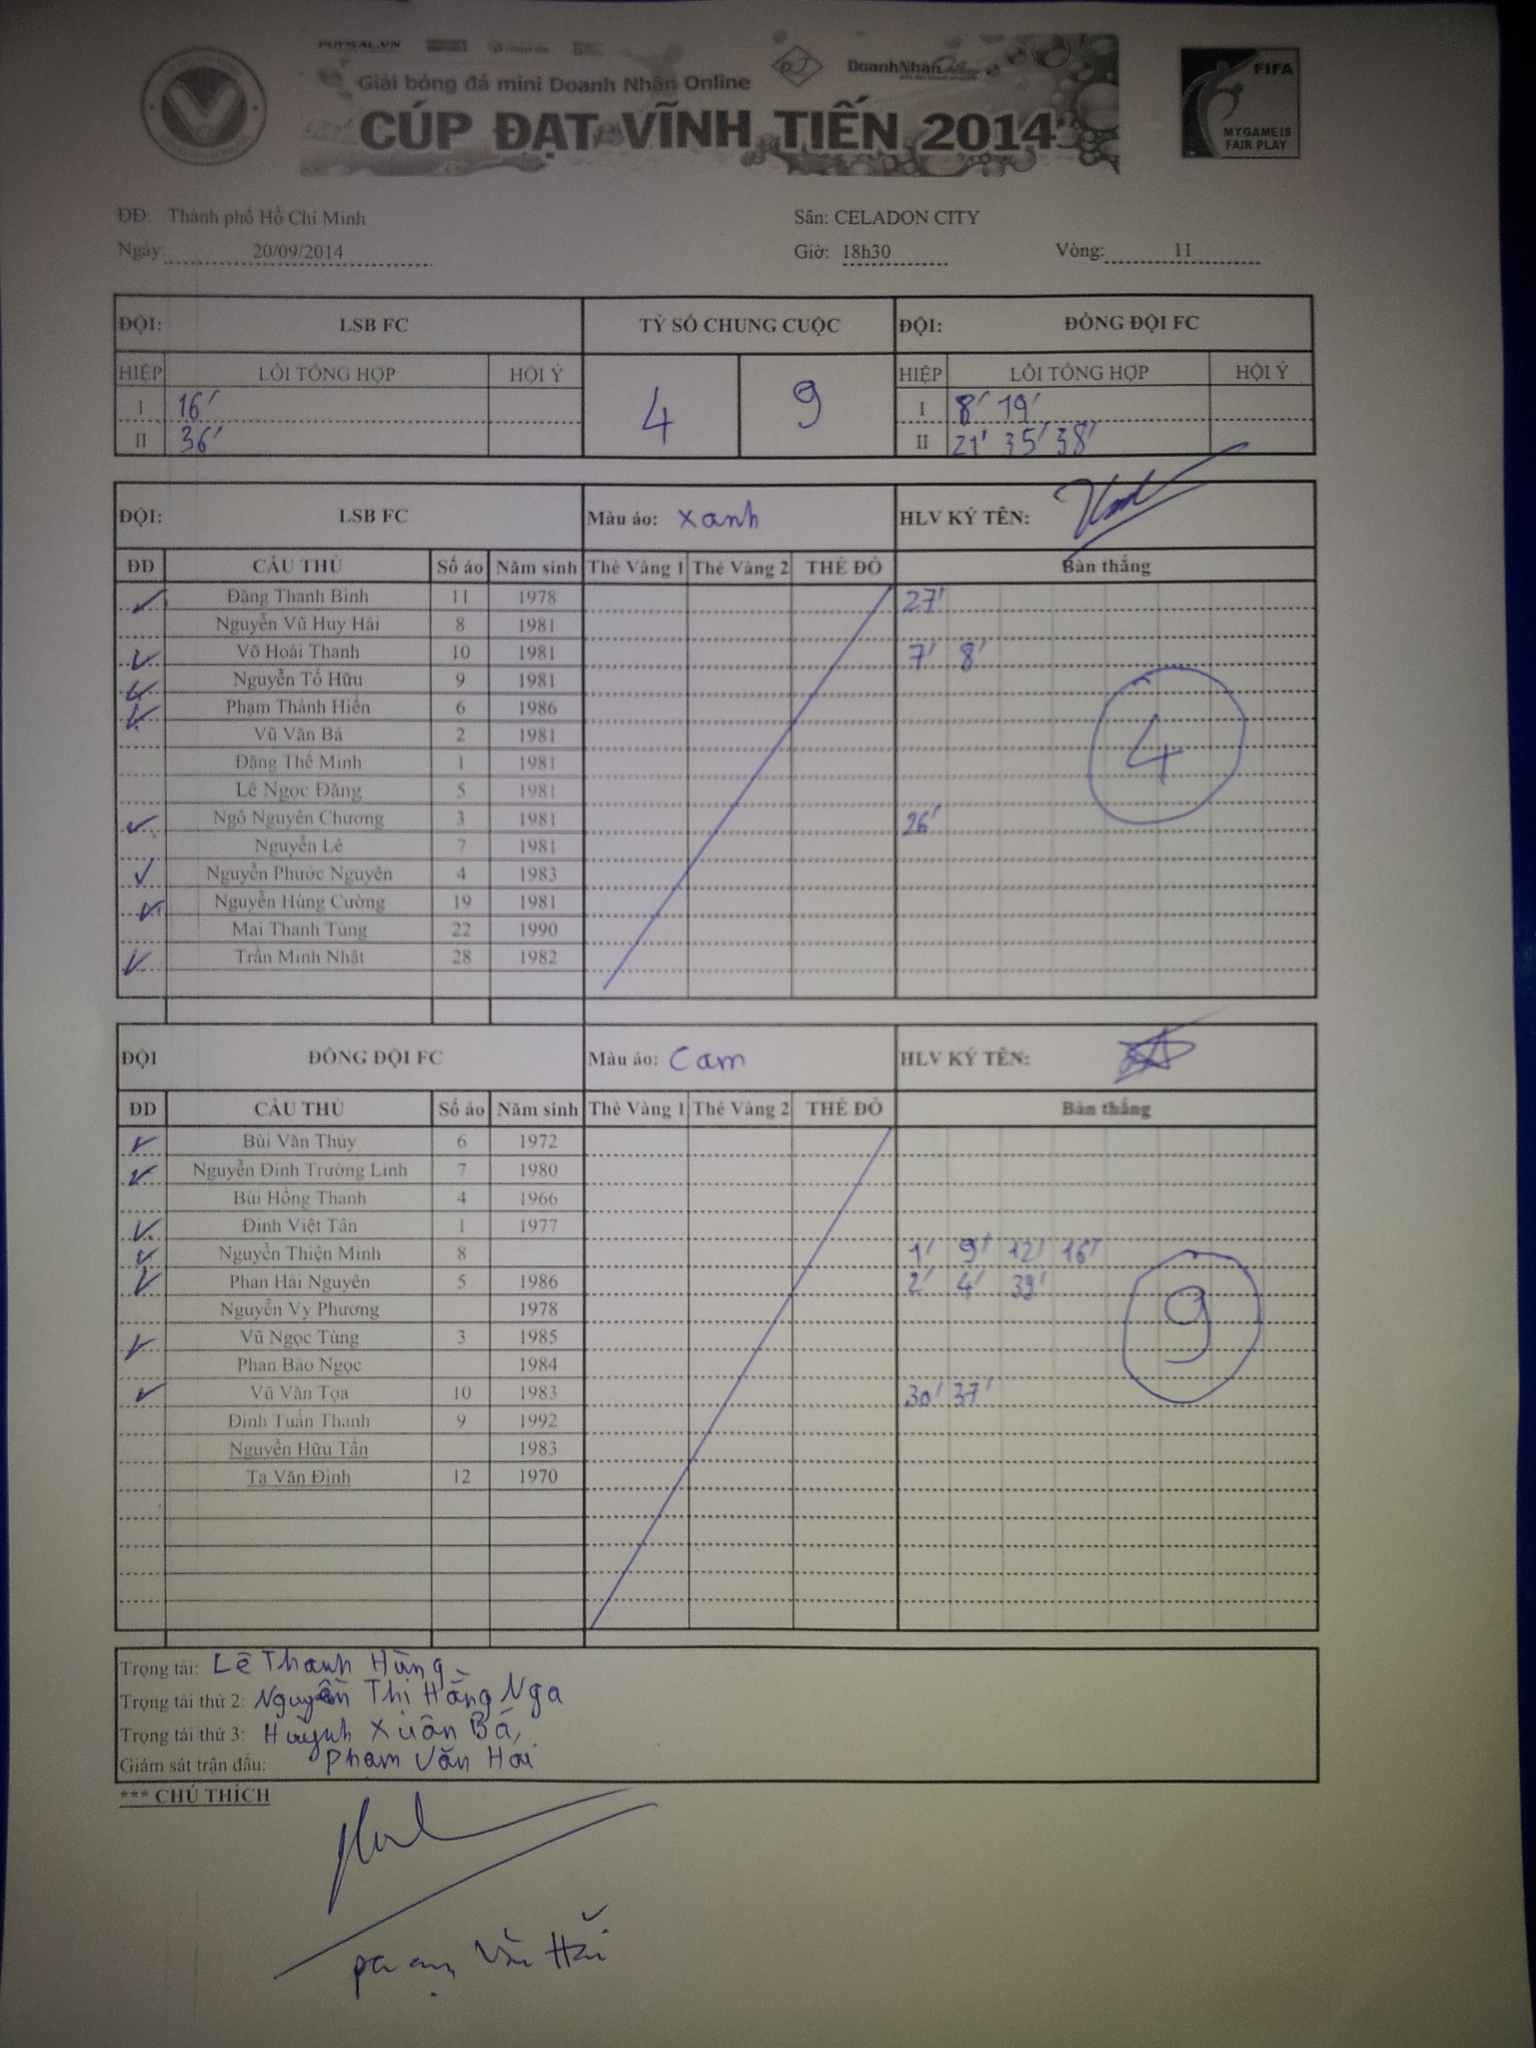 Giải bóng đá mini Doanh Nhân Online
DoanhNhân
CÚP ĐẠT VĨNH TIẾN 2014
FIFA
MY GAME IS
FAIR PLAY
ĐĐ: Thành phố Hồ Chí Minh Sân: CELADON CITY
Ngày: 20/09/2014 Giờ: 18h30 Vòng: 11
ĐỘI: LSB FC TỶ SỐ CHUNG CUỘC ĐỘI: ĐỒNG ĐỘI FC
HIỆP LỖI TỔNG HỢP HỘI Ý 4 9 HIỆP LỖI TỔNG HỢP HỘI Ý
I 16' I 8' 19'
II 36' II 21' 35' 38'
ĐỘI: LSB FC Màu áo: Xanh HLV KÝ TÊN:
ĐD CẦU THỦ Số áo Năm sinh Thẻ Vàng 1 Thẻ Vàng 2 THẺ ĐỎ Bàn thắng
Đặng Thanh Bình 11 1978 27'
Nguyễn Vũ Huy Hải 8 1981
Võ Hoài Thanh 10 1981 7' 8'
Nguyễn Tố Hữu 9 1981
Phạm Thánh Hiền 6 1986
Vũ Văn Bá 2 1981
4
Đặng Thế Minh 1 1981
Lê Ngọc Đăng 5 1981
Ngô Nguyên Chương 3 1981 26'
Nguyễn Lê 7 1981
Nguyễn Phước Nguyên 4 1983
Nguyễn Hùng Cường 19 1981
Mai Thanh Tùng 22 1990
Trần Minh Nhật 28 1982
ĐỘI ĐỒNG ĐỘI FC Màu áo: Cam HLV KÝ TÊN:
ĐD CẦU THỦ Số áo Năm sinh Thẻ Vàng 1 Thẻ Vàng 2 THẺ ĐỎ Bàn thắng
Bùi Văn Thủy 6 1972
Nguyễn Đình Trường Linh 7 1980
Bùi Hồng Thanh 4 1966
Đinh Việt Tân 1 1977
Nguyễn Thiện Minh 8 1' 9' 12' 16'
Phan Hải Nguyên 5 1986 2' 4' 39'
Nguyễn Vy Phương 1978
9
Vũ Ngọc Tùng 3 1985
Phan Bảo Ngọc 1984
Vũ Văn Tọa 10 1983 30' 37'
Đinh Tuấn Thanh 9 1992
Nguyễn Hữu Tấn 1983
Tạ Văn Định 12 1970
Trọng tài: Lê Thanh Hùng
Trọng tài thứ 2: Nguyễn Thị Hằng Nga
Trọng tài thứ 3: Huỳnh Xuân Bá
Giám sát trận đấu: Phạm Văn Hải
*** CHÚ THÍCH
Phạm Văn Hải